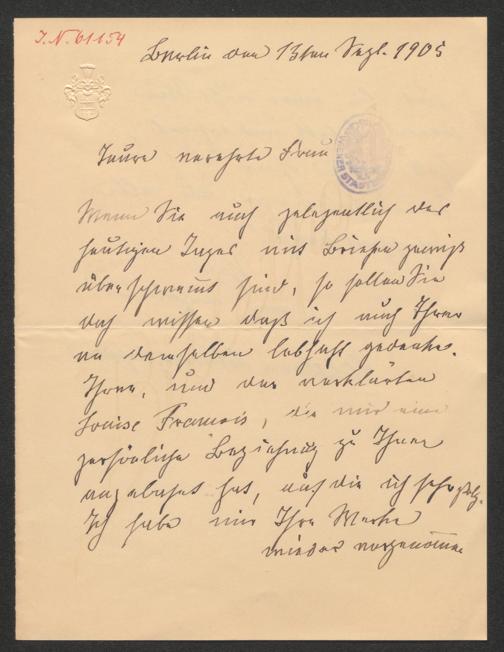 J.N. 61154
Berlin den 13ten Sept. 1905
Teure verehrte Frau
Wenn Sie auch gelegentlich des
heutigen Tages mit Briefen gewiß
überschwemmt sind, so sollen Sie
doch wissen daß ich auch Ihrer
an demselben lebhaft gedenke.
Ihrer, und der verklärten
Louise François, die mir eine
persönliche Beziehung zu Ihnen
angebahnt hat, auf die ich sehr stolz.
Ich habe mir Ihre Werke
wieder vorgenommen